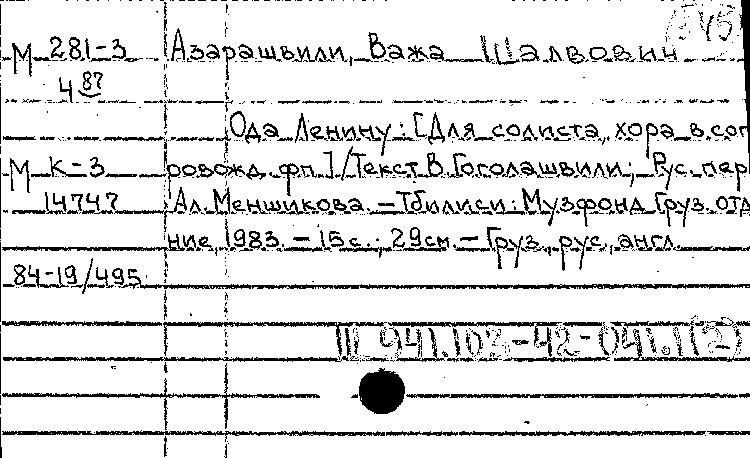 1545
М 281-3 Азарашвили, Важа Шалвович
4 87
Ода Ленину: [Для солиста, хора в соп
М К-3 ровожд. фп.] / Текст В. Гоголашвили; Рус. пер
14747 Ал. Меншикова. — Тбилиси: Музфонд Груз. отд
ние, 1983. — 15 с.; 29 см. — Груз., рус., англ.
84-19/495
Ш 941.103-42-041.1(2)